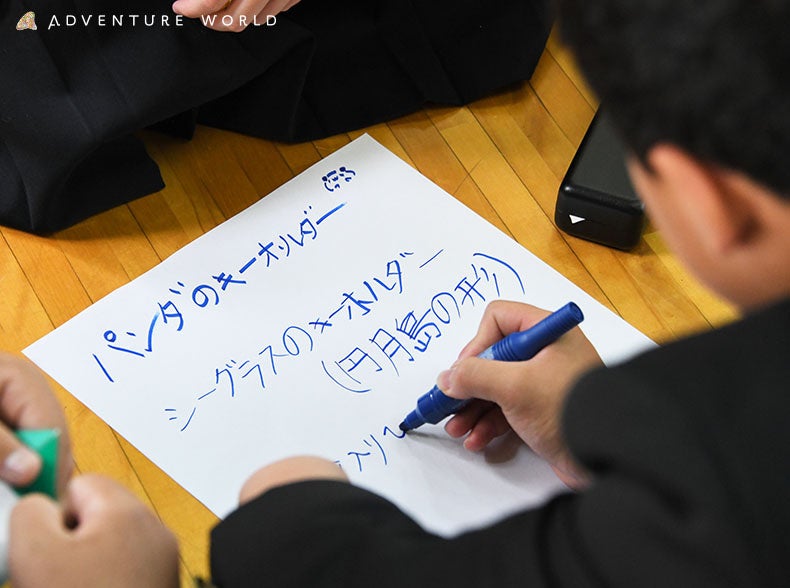 ADVENTURE WORLD
パンダのキーホルダー
シーグラスのキーホルダー
(円月島の形)
入り